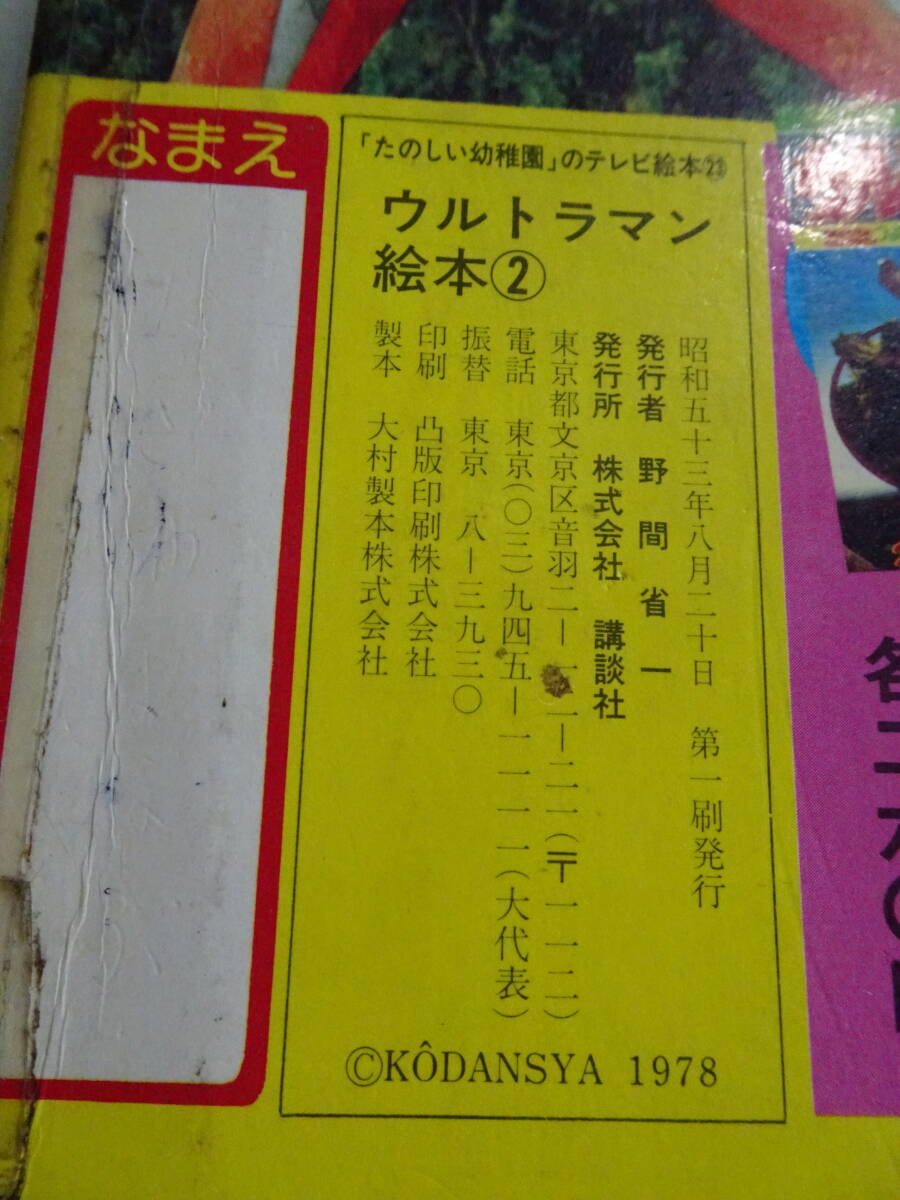 なまえ
「たのしい幼稚園」のテレビ絵本㉓
ウルトラマン
絵本②
昭和五十三年八月二十日 第一刷発行
発行者 野間省一
発行所 株式会社 講談社
東京都文京区音羽二ー一二ー二一(〒一一二)
電話 東京(〇三)九四五ー一一一一(大代表)
振替 東京 八ー三九三〇
印刷 凸版印刷株式会社
製本 大村製本株式会社
©KÔDANSYA 1978